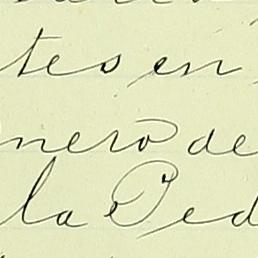 tes en
nero de
la Ped